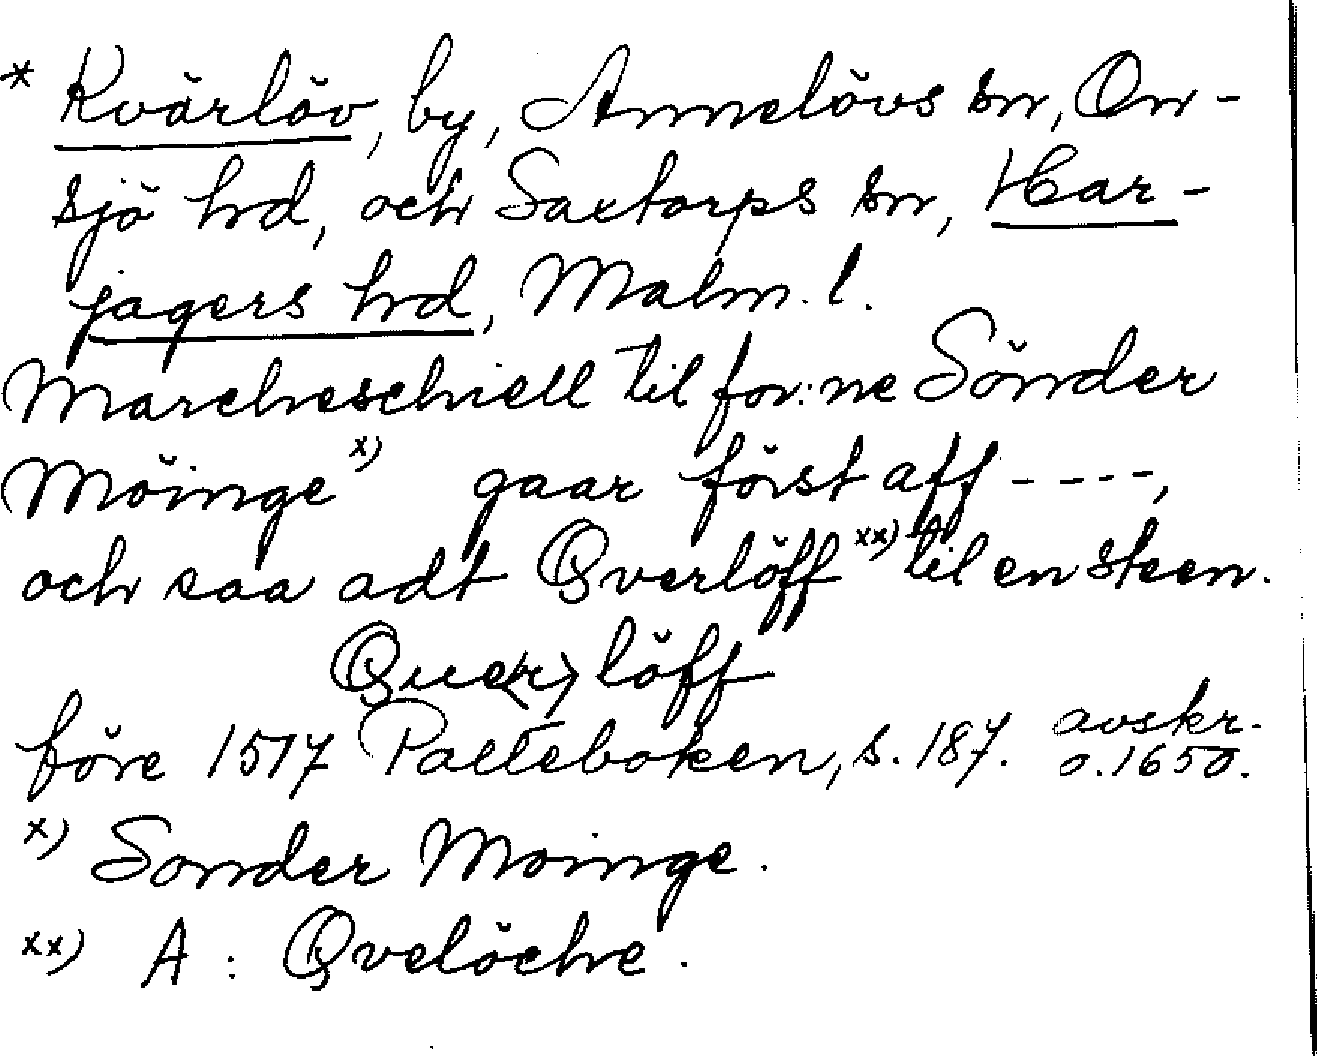 * Kvärlöv, by, Annelövs sn, On-
sjö hd, och Saxtorps sn, Har-
jagers hd, Malm. l.
Marcheschiell til for:ne Sönder
Möinge x) gaar först aff ----,
och saa adt Qverlöff xx) til en steen.
Que(r)löff
före 1517 Palteboken, s. 187. avskr.
o. 1650.
x) Sonder Moinge.
xx) A: Qvelöche.